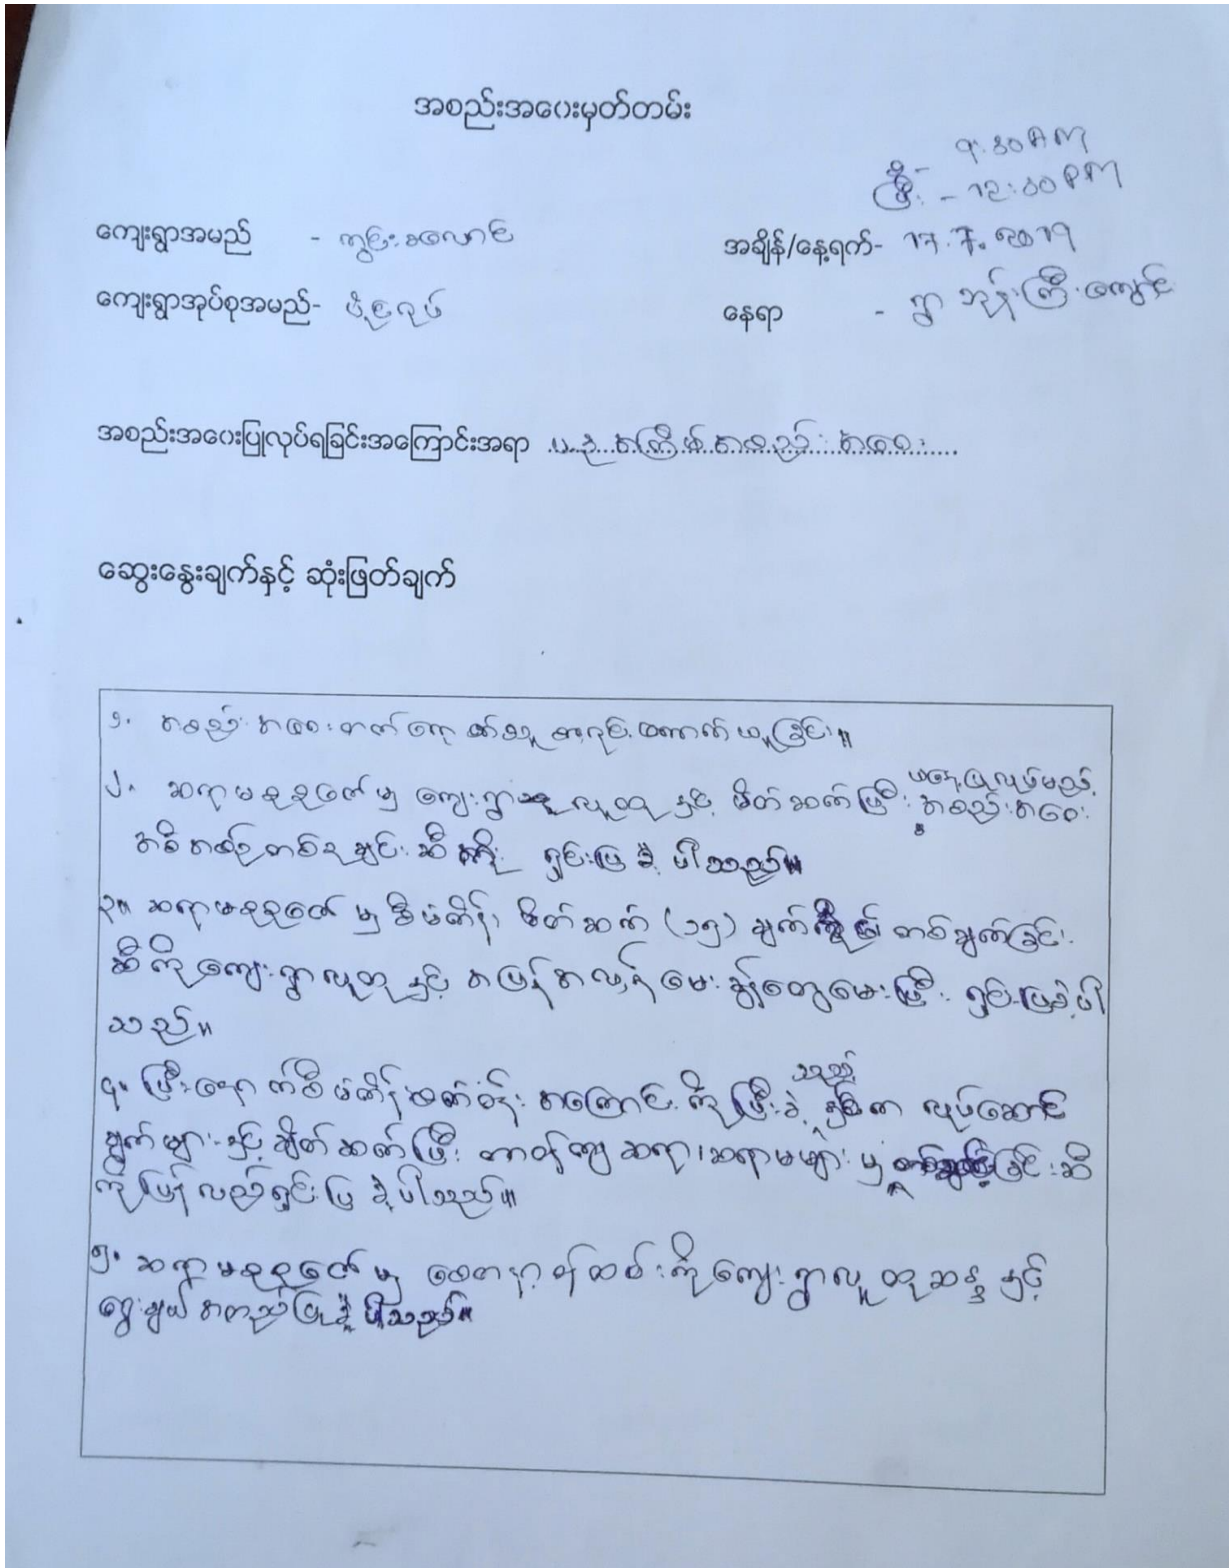 အစည်းအဝေးမှတ်တမ်း
၉:၃၀AM
ပြီး - 12:00PM
ကျေးရွာအမည် - ကွင်းခလောင်
အချိန်/နေ့ရက်- 17.7.2019
ကျေးရွာအုပ်စုအမည်-
နေရာ - ရွာဘုန်းကြီးကျောင်း
အစည်းအဝေးပြုလုပ်ရခြင်းအကြောင်းအရာ ပ-ဥ အကြိမ် အစည်းအဝေး
ဆွေးနွေးချက်နှင့် ဆုံးဖြတ်ချက်
၁. အစည်းအဝေးတက်ရောက်သူ စာရင်းကောက်ယူခြင်း။
၂. ဆရာမ မှ ကျေးရွာလူထုနှင့် မိတ်ဆက်ပြီး ယနေ့ပြုလုပ်မည့် အစည်းအဝေး
အစီအစဉ်တစ်ခုချင်းဆီကို ရှင်းပြခဲ့ပါသည်။
၃။ ဆရာမ မှ စီမံကိန်း မိတ်ဆက် (၁၅) ချက်ကို တစ်ချက်ခြင်း
ဆီကိုကျေးရွာလူထုနှင့် အပြန်အလှန်မေးခွန်းတွေမေးပြီး ရှင်းပြခဲ့ပါ
သည်။
၄. ပြီးနောက်စီမံကိန်း အကြောင်းကို ပြီးခဲ့သည့်နှစ်က လုပ်ဆောင်
ချက်များနှင့် ချိတ်ဆက်ပြီး တာဝန်ကျဆရာ၊ဆရာမများမှ ခြင်းဆီ
ကိုပြန်လည်ရှင်းပြခဲ့ပါသည်။
၅. ဆရာမ မှ စေတနာ့ဝန်ထမ်းကိုကျေးရွာလူထုဆန္ဒနှင့်
ရွေးချယ်အတည်ပြုခဲ့ပါသည်။